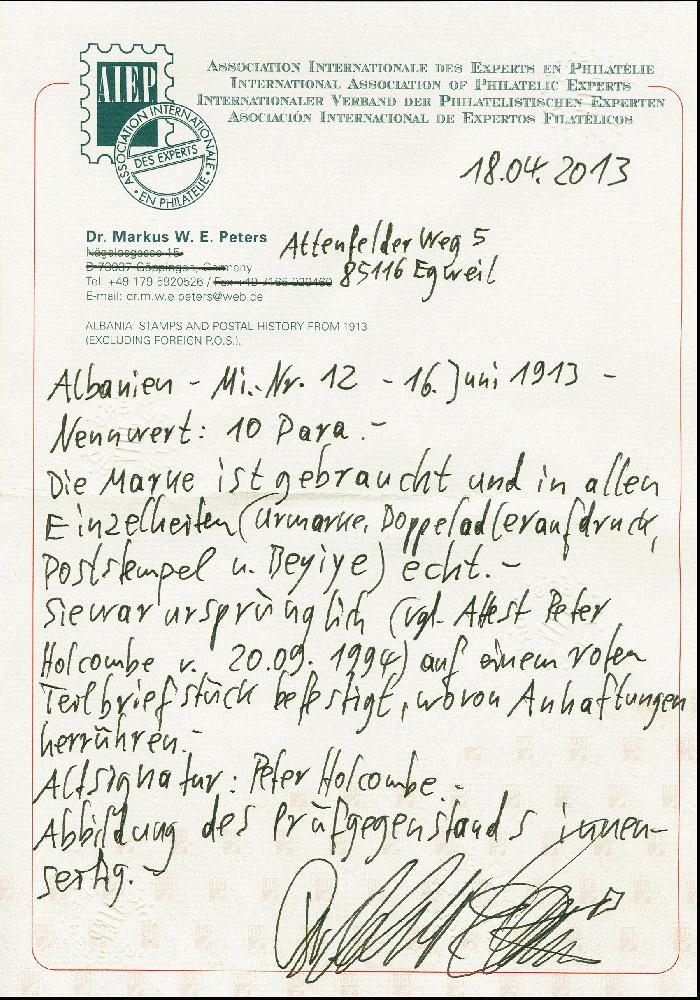 AIEP
ASSOCIATION INTERNATIONALE DES EXPERTS EN PHILATÉLIE
INTERNATIONAL ASSOCIATION OF PHILATELIC EXPERTS
INTERNATIONALER VERBAND DER PHILATELISTISCHEN EXPERTEN
ASOCIACIÓN INTERNACIONAL DE EXPERTOS FILATÉLICOS
ASSOCIATION INTERNATIONALE
DES EXPERTS
• EN PHILATELIE •
18.04.2013
Dr. Markus W. E. Peters
Attenfelder Weg 5
Nägelesgasse 15
D-73037 Göppingen, Germany
85116 Egweil
Tel. +49 179 5920526 / Fax +49 7165 929460
E-mail: dr.m.w.e.peters@web.de
ALBANIA: STAMPS AND POSTAL HISTORY FROM 1913
(EXCLUDING FOREIGN P.O.S.).
Albanien - Mi.-Nr. 12 - 16. Juni 1913 -
Nennwert: 10 Para.-
Die Marke ist gebraucht und in allen
Einzelheiten (Urmarke, Doppeladleraufdruck,
Poststempel u. Beyiye) echt.-
Sie war ursprünglich (vgl. Attest Peter
Holcombe v. 20.09.1994) auf einem roten
Teilbriefstück befestigt, wovon Anhaftungen
herrühren.-
Altsignatur: Peter Holcombe.-
Abbildung des Prüfgegenstands innen-
seitig.-